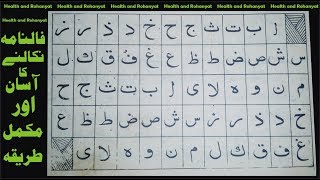 Health and Rohanyat Health and Rohanyat Health and Rohanyat Health and Rohanyat
Health and Rohanyat
فالنامہ
نکالنے
کا
آسان
اور
مکمل
طریقہ
ا ب ت ث ج ح خ د ذ ر ز
س ش ص ض ط ظ ع غ ف ق ک ل
م ن و ہ لا ی ا ب ت ث ج ح
خ د ذ ر ز س ش ص ض ط ظ ع
غ ف ق ک ل م ن و ہ لا ی